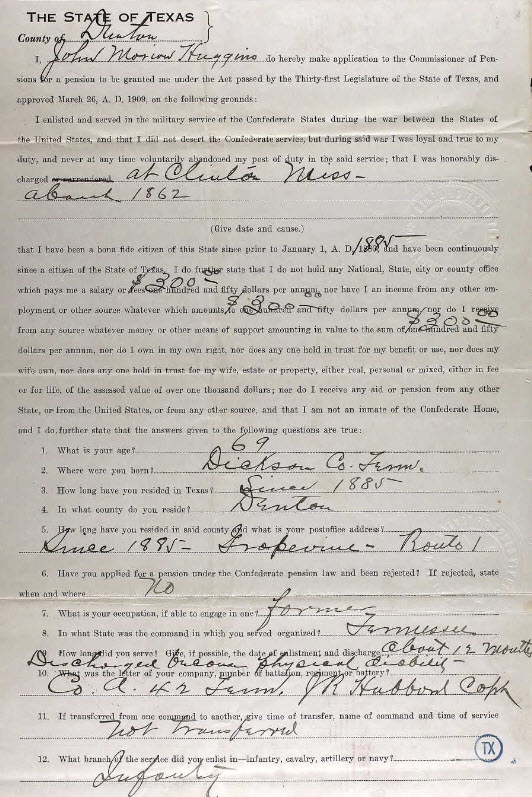 THE STATE OF TEXAS
County of Denton
I, John Morion Huggins do hereby make application to the Commissioner of Pen-
sions for a pension to be granted me under the Act passed by the Thirty-first Legislature of the State of Texas, and
approved March 26, A. D. 1909, on the following grounds:
I enlisted and served in the military service of the Confederate States during the war between the States of
the United States, and that I did not desert the Confederate service, but during said war I was loyal and true to my
duty, and never at any time voluntarily abandoned my post of duty in the said service; that I was honorably dis-
charged or surrendered at Clinton Miss-
about 1862
(Give date and cause.)
that I have been a bona fide citizen of this State since prior to January 1, A. D. 1885, and have been continuously
since a citizen of the State of Texas. I do further state that I do not hold any National, State, city or county office
which pays me a salary or fees $300 one hundred and fifty dollars per annum, nor have I an income from any other em-
ployment or other source whatever which amounts to $300.00 one hundred and fifty dollars per annum, nor do I receive
from any source whatever money or other means of support amounting in value to the sum of $300.00 one hundred and fifty
dollars per annum, nor do I own in my own right, nor does any one hold in trust for my benefit or use, nor does my
wife own, nor does any one hold in trust for my wife, estate or property, either real, personal or mixed, either in fee
or for life, of the assessed value of over one thousand dollars; nor do I receive any aid or pension from any other
State, or from the United States, or from any other source, and that I am not an inmate of the Confederate Home,
and I do further state that the answers given to the following questions are true:
1. What is your age? 69
2. Where were you born? Dickson Co. Tenn.
3. How long have you resided in Texas? Since 1885
4. In what county do you reside? Denton
5. How long have you resided in said county and what is your postoffice address?
Since 1885- Grapevine- Route 1
6. Have you applied for a pension under the Confederate pension law and been rejected? If rejected, state
when and where No
7. What is your occupation, if able to engage in one? Farmer
8. In what State was the command in which you served organized? Tennessee
9. How long did you serve? Give, if possible, the date of enlistment and discharge. About 12 Months
Discharged physical disability-
10. What was the letter of your company, number of battalion, regiment or battery?
Co. A. 42 Tenn. JR Hubbard Capt
11. If transferred from one command to another, give time of transfer, name of command and time of service
not transferred
12. What branch of the service did you enlist in—infantry, cavalry, artillery or navy?
Infantry
TX